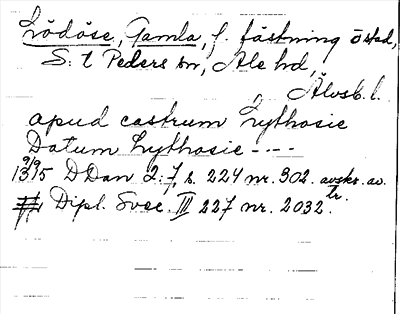 Lödöse, Gamla, f. fästning o stad,
S:t Peders sn, Ale hd,
Älvsb. l.
apud castrum Lythosie
Datum Lythosie ----
9/9
1315 DDan 2:7, s. 224 nr. 302. avskr. av
tr.
Dipl. Svec. III 227 nr. 2032.